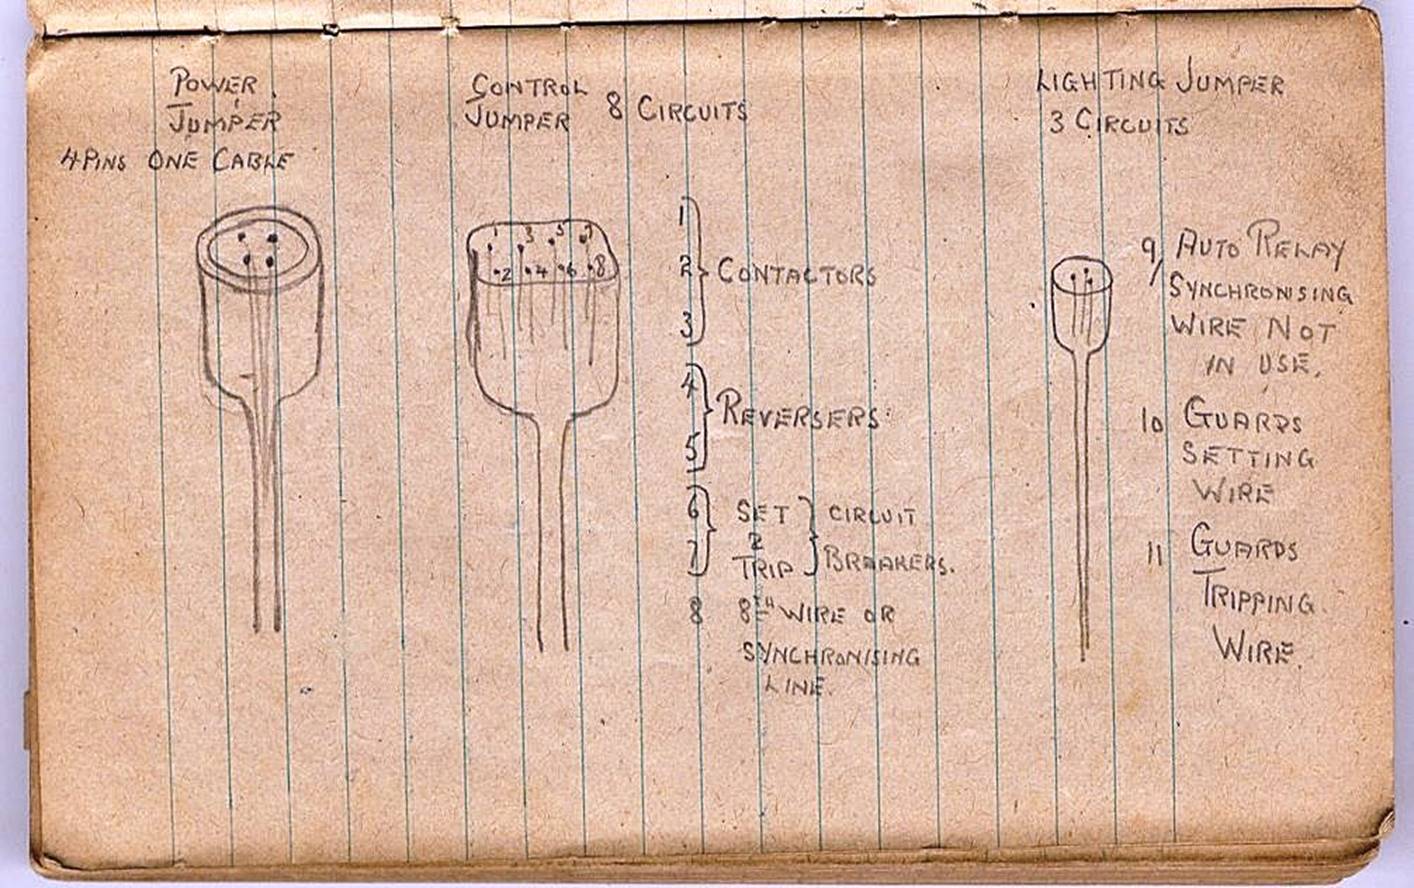 POWER
JUMPER
4 PINS ONE CABLE
CONTROL
JUMPER 8 CIRCUITS
1 3 5 7
2 4 6 8
1
2 CONTACTORS
3
4
REVERSERS
5
6 SET CIRCUIT
7 TRIP BREAKERS.
8 8TH WIRE OR
SYNCHRONISING
LINE.
LIGHTING JUMPER
3 CIRCUITS
9/ AUTO RELAY
SYNCHRONISING
WIRE NOT
IN USE.
10 GUARDS
SETTING
WIRE
11 GUARDS
TRIPPING
WIRE.